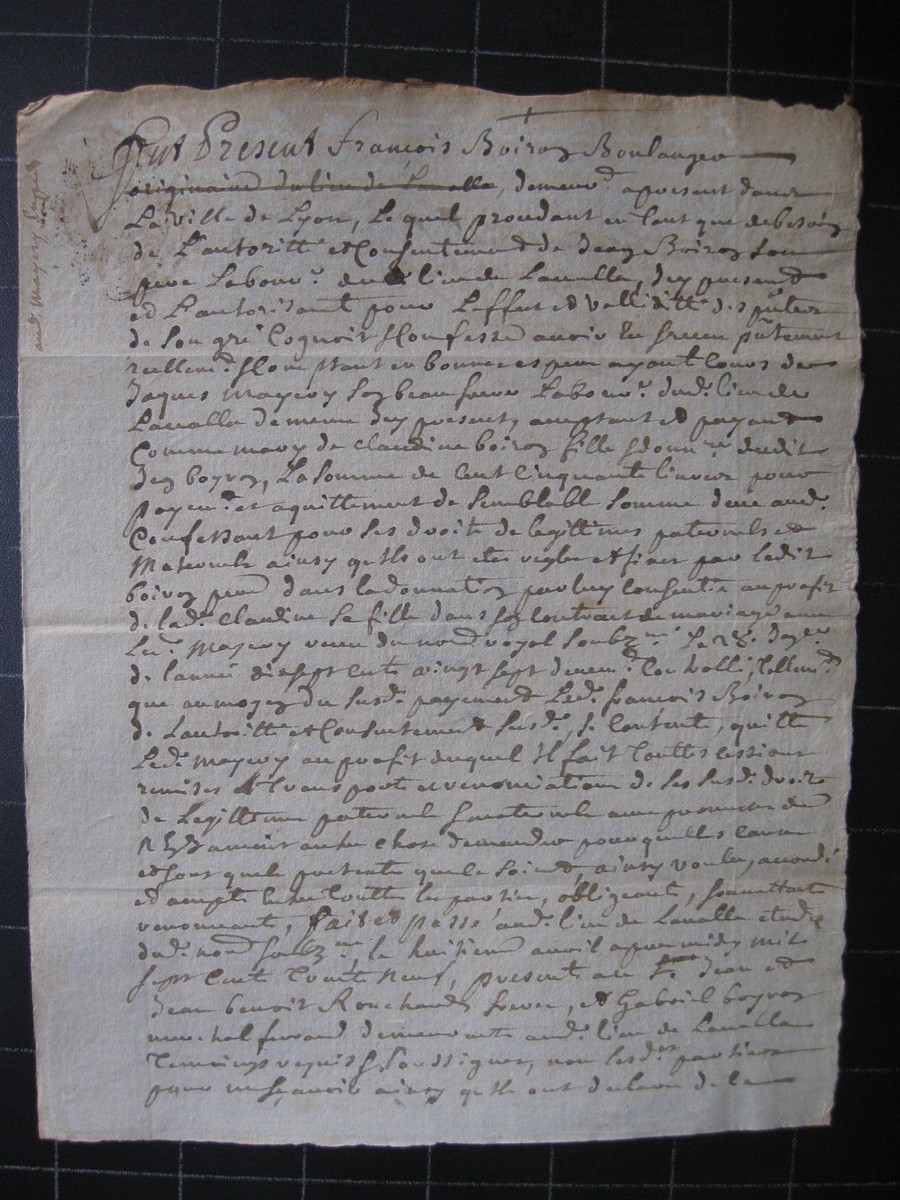 Fut Present François Boiron Boulanger
originaire du lieu de Lavalla, demeur.t a present dans
La ville de Lyon, Le quel procedant en tant que de besoin
de L'autoritté et Consentement de Jean Boiron son
pere Labour.r du lieu de Lavalla, Icy present
et L'autorisant pour L'effect et validitté des pñtes
de son gré Cognoit & Confesse avoir eu & receu pñtement
reellem.t & Comptant en bonnes especes ayant Cours de
Jaques Mayery son beau frere Labour.r dud. lieu de
Lavalla de meme Icy present, acceptant et payant
Comme mary de Claudine boiron fille & donn.re dudit
Jean boyron, La somme de Cent Cinquante livres pour
payem.t et aquittement de semblable somme deüe aud.
Confessant pour ses droits de legittimes paternels et
Maternels ainsy qu'ils ont etés reglés et fixés par ledit
boiron pere dans la donnation par luy Consentie au profit
de lad. Claudine sa fille dans son Contract de mariage avec
Led. Mayery receu du not.re royal soubz.né Le
de l'année dix sept cents vingt sept deuem.t Controllé, tellem.t
que au moyen du susd. payement Led. françois Boiron
de L'autoritté et Consentement susd. se Contente, quitte
Led. Mayery au profit duquel Il fait touttes cessions
remises & transports et renonciations de ses susd. droits
de Legittime paternels & maternels avec promesse de
n'en Jamais autre chose demander pour quelle cause
et sous quel pretexte que ce soient, ainsy voulu, accordé
et accepté entre touttes les parties, obligeant, soumettant
renonceant, fait et passé aud. lieu de Lavalla etude
dud. not.re soubz.né, le huitieme avril apres midy mil
sept Cent trente Neuf, presents a ce S.rs Jean et
Jean benoit Rouchard freres, et Gabriel boyron
marechal ferrand demeurants aud. lieu de Lavalla
temoins requis & soussignez, non lesd. parties
pour ne scavoir ainsy qu'ils ont declaré de ce